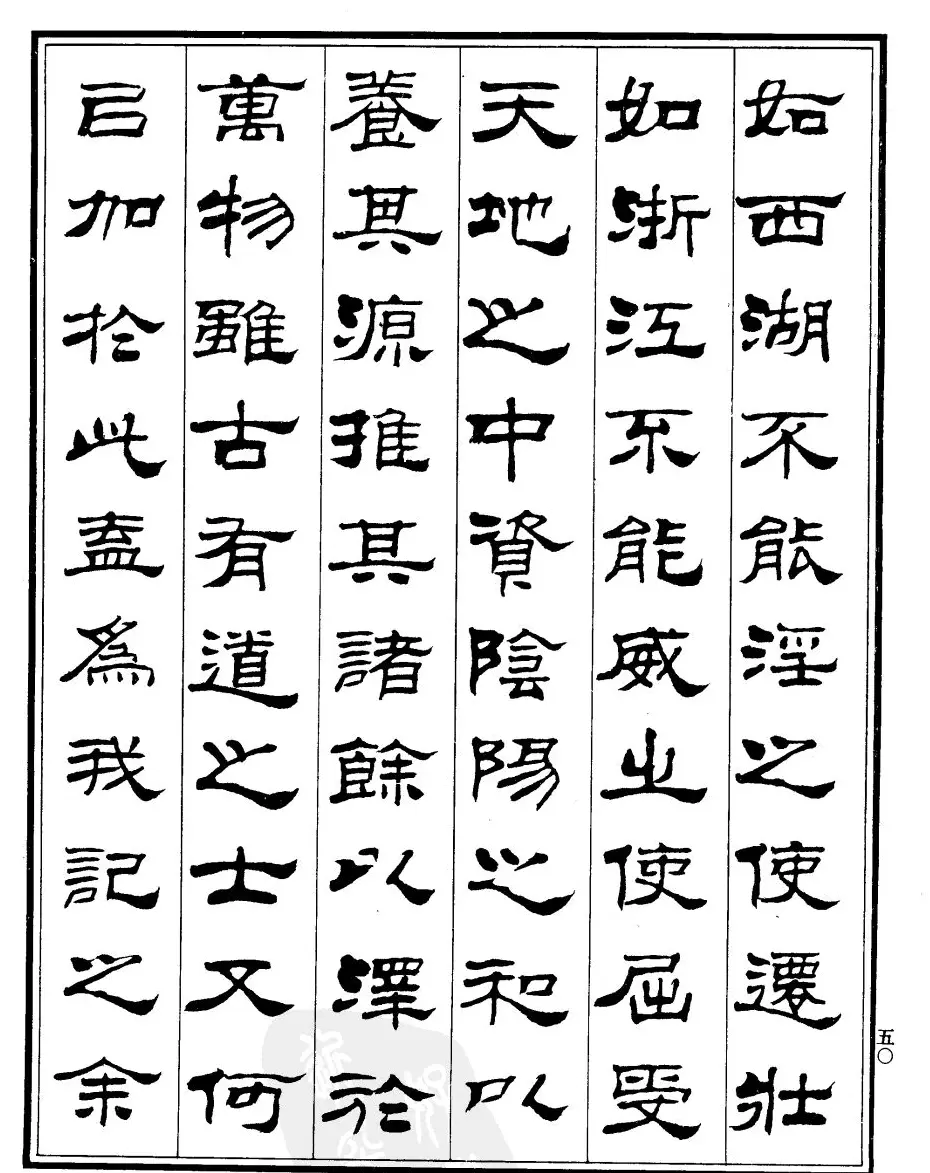 如西湖不能淫之使遷壯
如浙江不能威之使屈受
天地之中資陰陽之和以
養其源推其諸餘以澤於
萬物雖古有道之士又何
㠯加於此盍爲我記之余
五〇